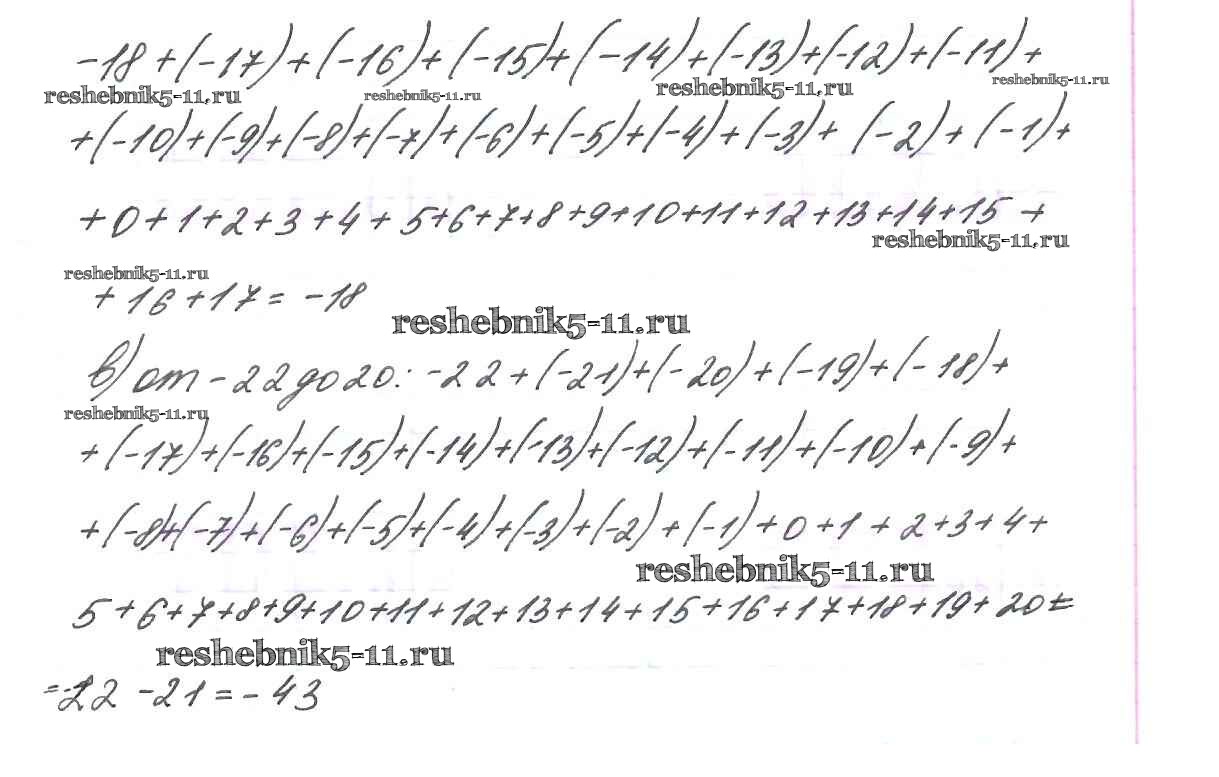 -18+(-17)+(-16)+(-15)+(-14)+(-13)+(-12)+(-11)+
reshebnik5-11.ru reshebnik5-11.ru reshebnik5-11.ru reshebnik5-11.ru
+(-10)+(-9)+(-8)+(-7)+(-6)+(-5)+(-4)+(-3)+(-2)+(-1)+
+0+1+2+3+4+5+6+7+8+9+10+11+12+13+14+15+
reshebnik5-11.ru
reshebnik5-11.ru
+16+17=-18
reshebnik5-11.ru
в) от -22 до 20: -22+(-21)+(-20)+(-19)+(-18)+
reshebnik5-11.ru
+(-17)+(-16)+(-15)+(-14)+(-13)+(-12)+(-11)+(-10)+(-9)+
+(-8)+(-7)+(-6)+(-5)+(-4)+(-3)+(-2)+(-1)+0+1+2+3+4+
reshebnik5-11.ru
5+6+7+8+9+10+11+12+13+14+15+16+17+18+19+20=
reshebnik5-11.ru
=-22-21=-43